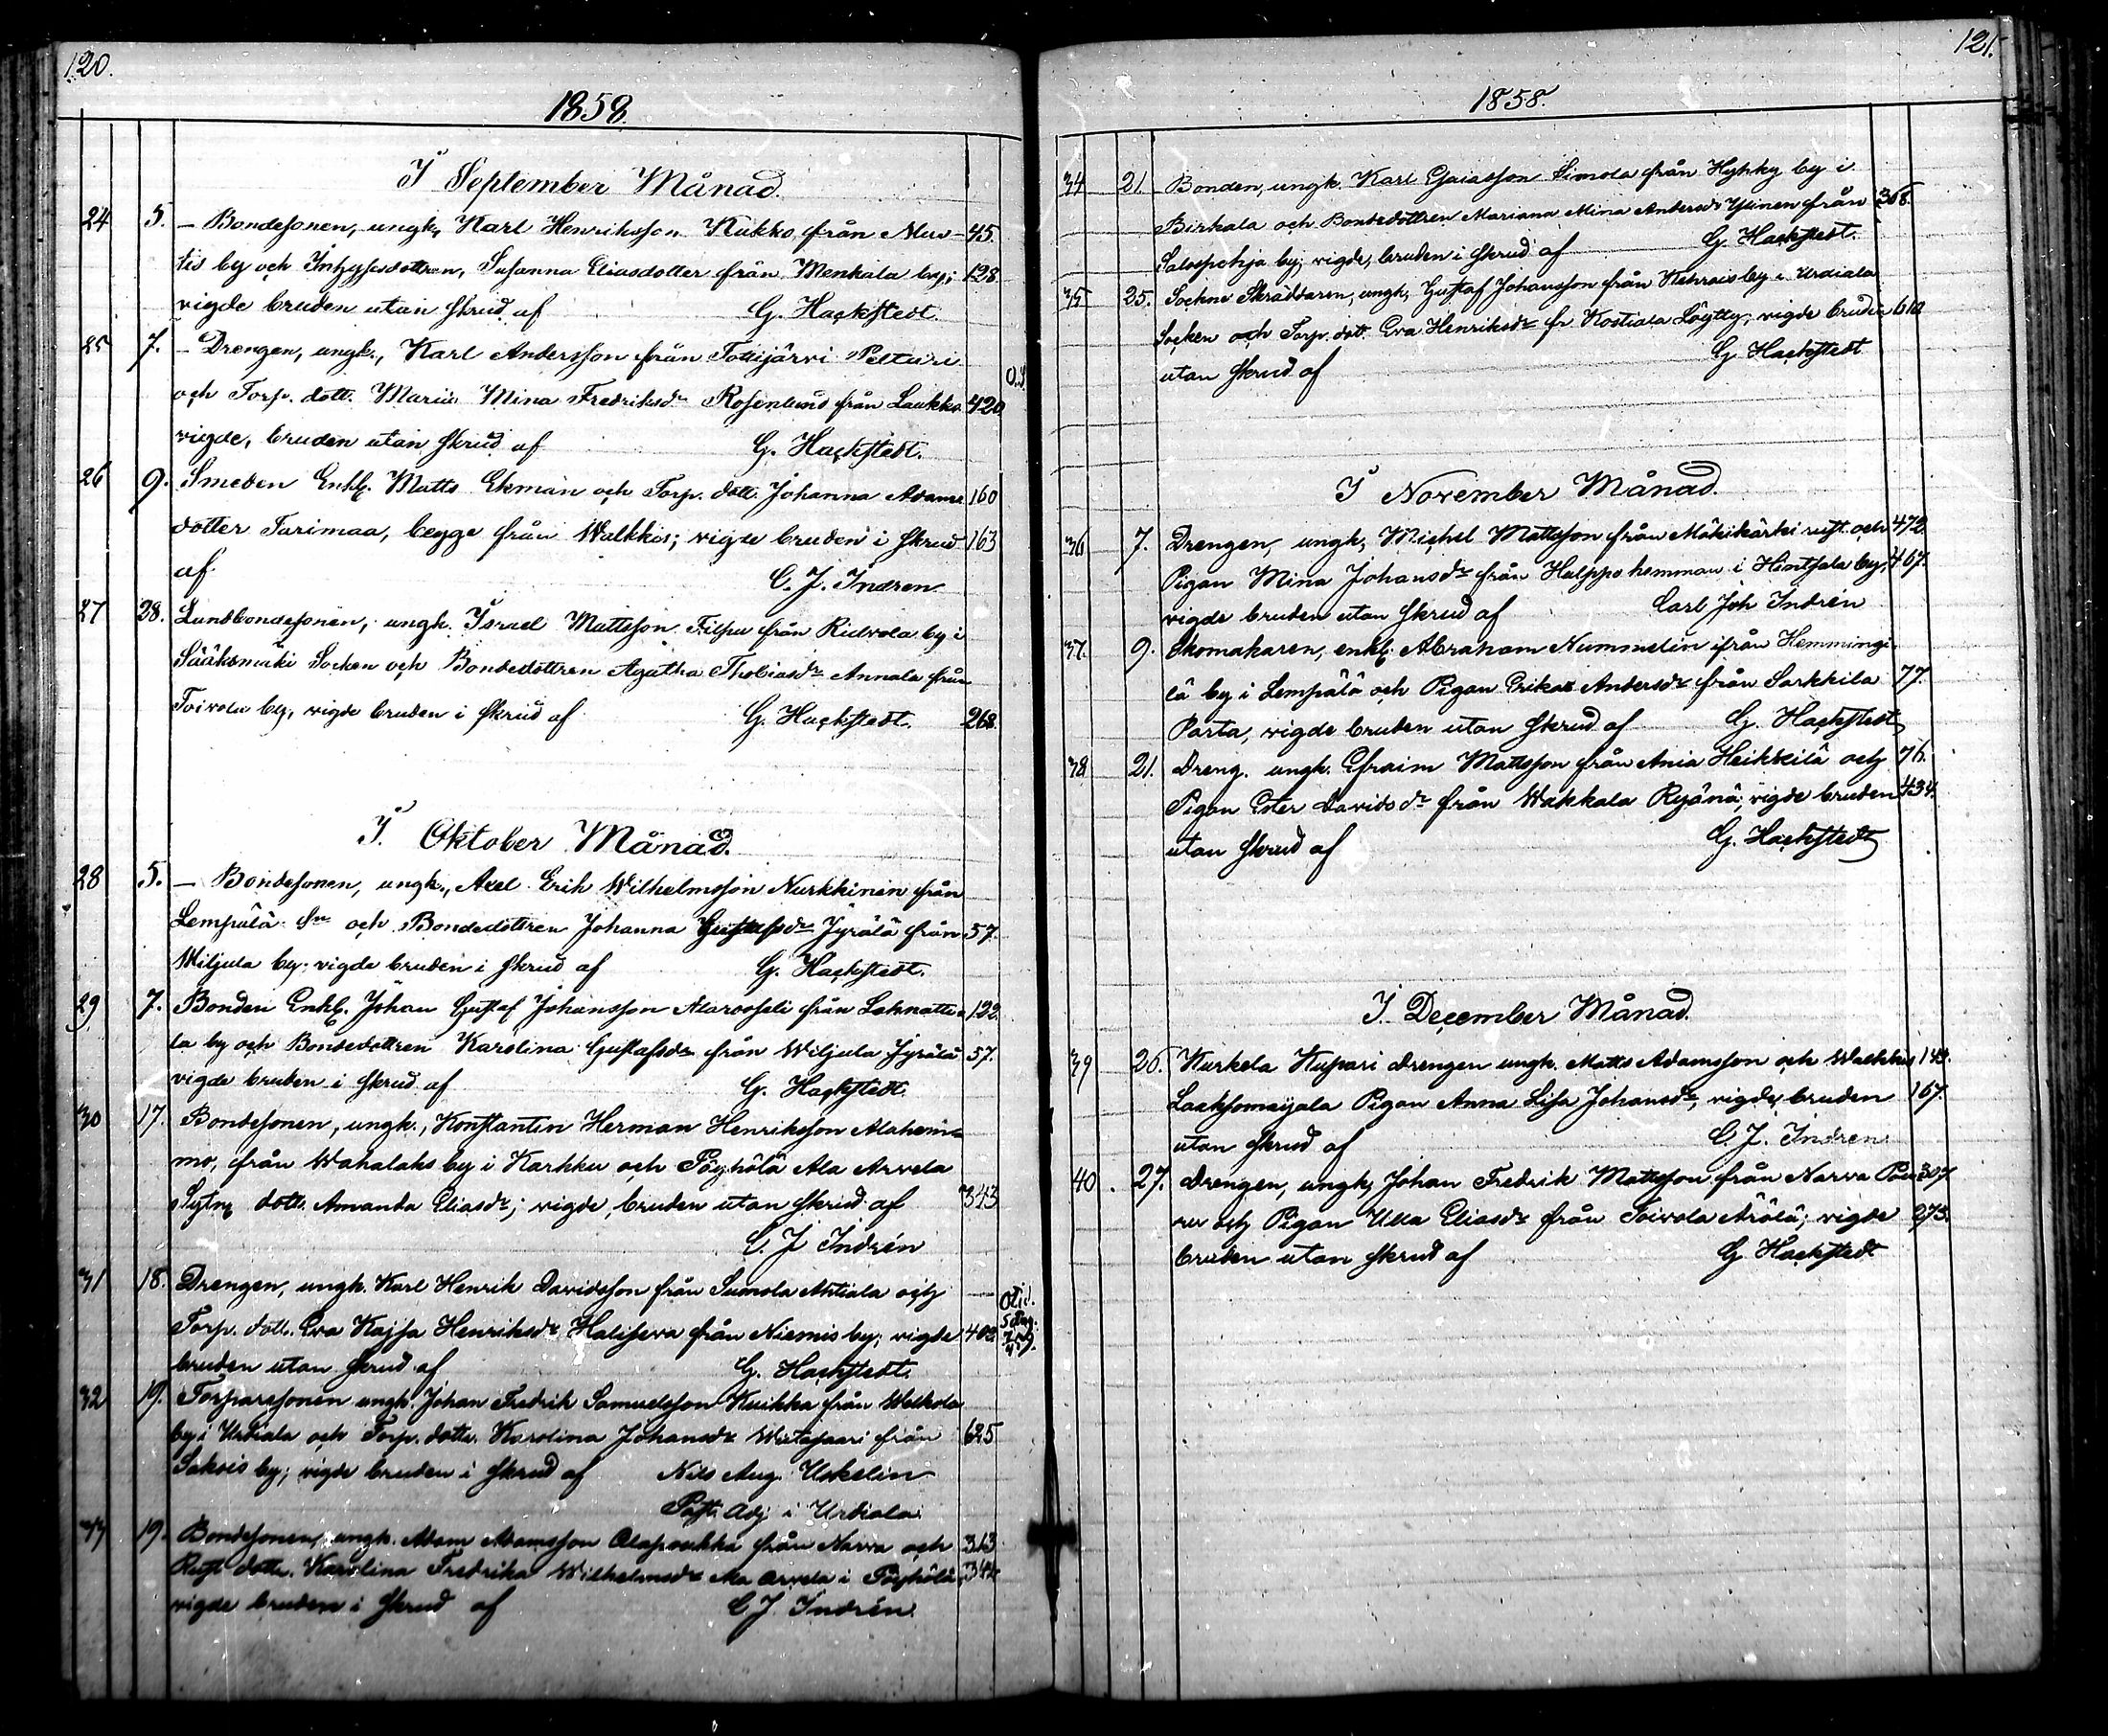 120.
1858.
I September Månad.
24 5. – Bondesonen, ungk, Karl Henriksson Kukko från Alus- 45.
tis by och Inhysesdottren, Susanna Eliasdotter från Menkala by; 128.
vigde bruden utan skrud af G. Hackstedt.
25 7. – Drengen, ungk., Karl Andersson från Tottijärvi Pelturi O.S.
och Torp. dott. Maria Mina Fredriksdr Rosenlund från Laukko 420
vigde, bruden utan skrud af G. Hackstedt.
26 9. Smeden Enkl. Matts Ekman och Torp. dott. Johanna Adams 160
dotter Tarimaa, begge från Walkkis; vigde bruden i skrud 163
af C. J. Indren
27 28. Landbondesonen, ungk. Israel Mattsson Filpu från Ridvola by i
Sääksmäki Socken och Bondedottren Agatha Thobiasdr Annala från
Toivola by, vigde bruden i skrud af G. Hackstedt. 268.
I Oktober Månad.
28 5. – Bondesonen, ungk., Axel Erik Wilhelmsson Nurkkinen från
Lempälä Sn och Bondedottren Johanna Gustafsdr Jyrälä från 57.
Wiljula by; vigde bruden i skrud af G. Hackstedt.
29 7. Bonden Enkl. Johan Gustaf Johansson från 122.
la by och Bondedottren Karolina Gustafsdr från Wiljula Jyrälä 57.
vigde bruden i skrud af G. Hackstedt.
30 17. Bondesonen, ungk., Konstantin Herman Henriksson Alaheimo-
mo, från Wahalaks by i Karkku och Pöyhölä Ala Arvela
Sytn dott. Amanda Eliasdr; vigde, bruden utan skrud af 343
C. J Indrén
31 18. Drengen, ungk. Karl Henrik Davidsson från Sumola Ahtiala och
Torp. dott. Eva Kajsa Henriksdr Halisewa från Niemis by; vigde 402
bruden utan skrud af G. Hackstedt.
32 19. Torparesonen ungk. Johan Fredrik Samuelsson Kuikka från Walkola
by i Urdiala och Torp. dottr. Karolina Johansdr Wirtasaari från 625
Saksis by; vigde bruden i skrud af Nils Aug. Uskelin
Past. Adj. i Urdiala.
33 19. Bondesonen, ungk. Adam Adamsson Alapoukka från Narva och 313
Rust dottr. Karolina Fredrika Wilhelmsdr Ala Arvela i Pöyhölä 344
vigde bruden i skrud af C J. Indrén
121.
1858.
34 21 Bonden, ungk. Karl Esaiasson Simola från Hyhky by i
Birkala och Bondedottren Mariana Mina Andersdr Ylinen från 368.
Salospohja by; vigde, bruden i skrud af G. Hackstedt.
35 25. Sockne Skräddaren, ungk, Gustaf Johansson från Kehrois by i Urdiala
Socken och Torp. dott. Eva Henriksdr fr Kostiala Löytty; vigde bruden 610
utan skrud af G Hackstedt
I November Månad.
36 7. Drengen, ungk, Michel Mattsson från Mäkikärki rust. och 472
Pigan Mina Johansdr från Hulppo hemman i Hintsala by, 467.
vigde bruden utan skrud af Carl Joh Indrén
37. 9. Skomakaren, enkl. Abraham Nummelin från Hemmingi-
lä by i Lempälä och Pigan Erika Andersdr från Sarkkila 77.
Parta, vigde bruden utan skrud af G. Hackstedt
38 21. Dreng. ungk. Efraim Mattsson från Ania Heikkilä och 76.
Pigan Ester Davidsdr från Wakkala Ryänä; vigde bruden 434.
utan skrud af G. Hackstedt
I December Månad.
39 26. Kurkela Kupari drengen ungk. Matts Adamsson och Walkkis 143.
Laaksomaijala Pigan Anna Lisa Johansdr, vigde, bruden 167.
utan skrud af C J. Indren
40. 27. Drengen, ungk, Johan Fredrik Mattsson från Narva 307.
och Pigan Ulla Eliasdr från Toivola Arölä; vigde 273.
bruden utan skrud af G Hackstedt